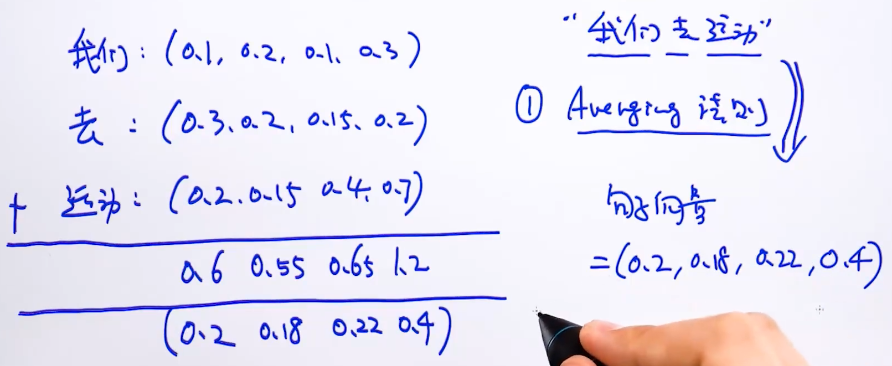 我们: (0.1, 0.2, 0.1, 0.3)
去 : (0.3, 0.2, 0.15, 0.2)
+ 运动: (0.2, 0.15 0.4, 0.7)
0.6 0.55 0.65 1.2
(0.2 0.18 0.22 0.4)
"我们 去 运动"
① Averging 法则
句子向量
=(0.2, 0.18, 0.22, 0.4)